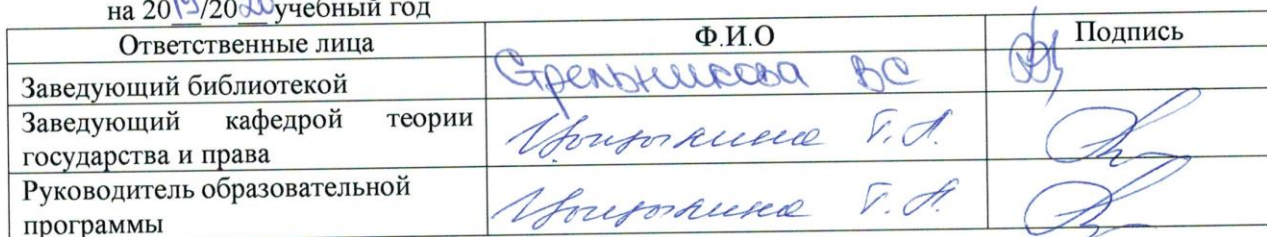 на 2019/2020 учебный год
Ответственные лица Ф.И.О Подпись
Заведующий библиотекой Стрельникова ВС
Заведующий кафедрой теории
государства и права Т.А.
Руководитель образовательной
программы Т.А.